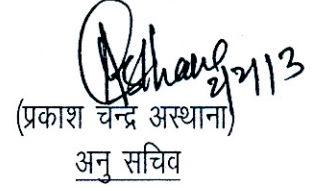 (प्रकाश चन्द्र अस्थाना)
अनु सचिव